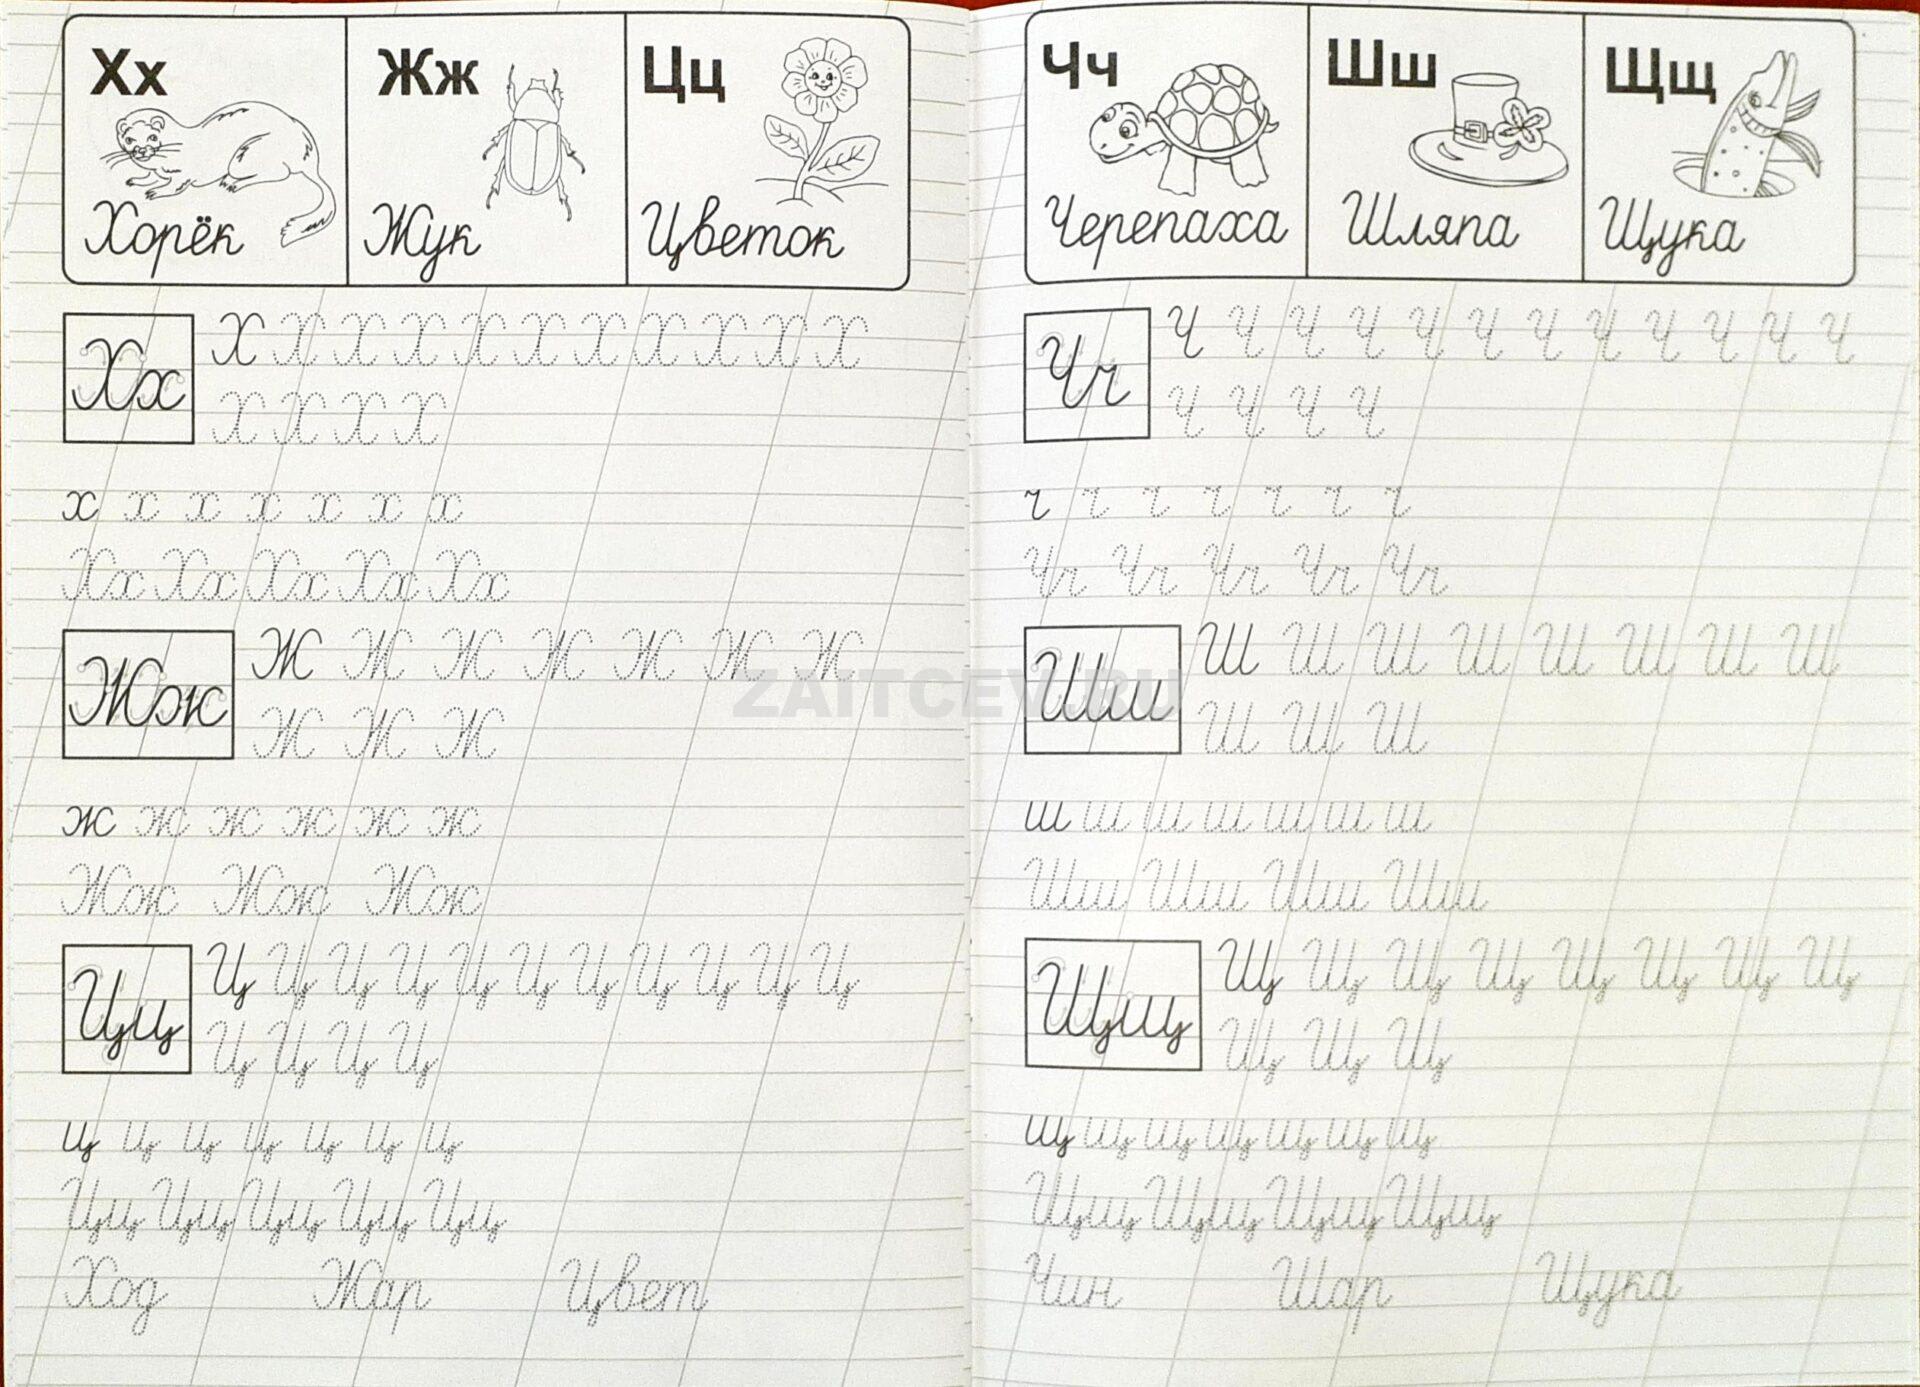 Хх Жж Цц
Хорёк Жук Цветок
Хх Х Х Х Х Х Х Х Х Х Х Х
Х Х Х Х
х х х х х х х
Хх Хх Хх Хх Хх
Жж Ж Ж Ж Ж Ж Ж Ж
Ж Ж Ж
ж ж ж ж ж ж
Жж Жж Жж
Цц Ц Ц Ц Ц Ц Ц Ц Ц Ц Ц Ц
Ц Ц Ц Ц
ц ц ц ц ц ц ц
Цц Цц Цц Цц Цц
Ход Жар Цвет
Чч Шш Щщ
Черепаха Шляпа Щука
Чч Ч Ч Ч Ч Ч Ч Ч Ч Ч Ч Ч Ч
Ч Ч Ч Ч
ч ч ч ч ч ч ч
Чч Чч Чч Чч Чч
Шш Ш Ш Ш Ш Ш Ш Ш Ш
Ш Ш Ш
ш ш ш ш ш ш ш
Шш Шш Шш Шш
Щщ Щ Щ Щ Щ Щ Щ Щ Щ
Щ Щ Щ
щ щ щ щ щ щ щ
Щщ Щщ Щщ Щщ
Чин Шар Щука
ZAITCEV.RU